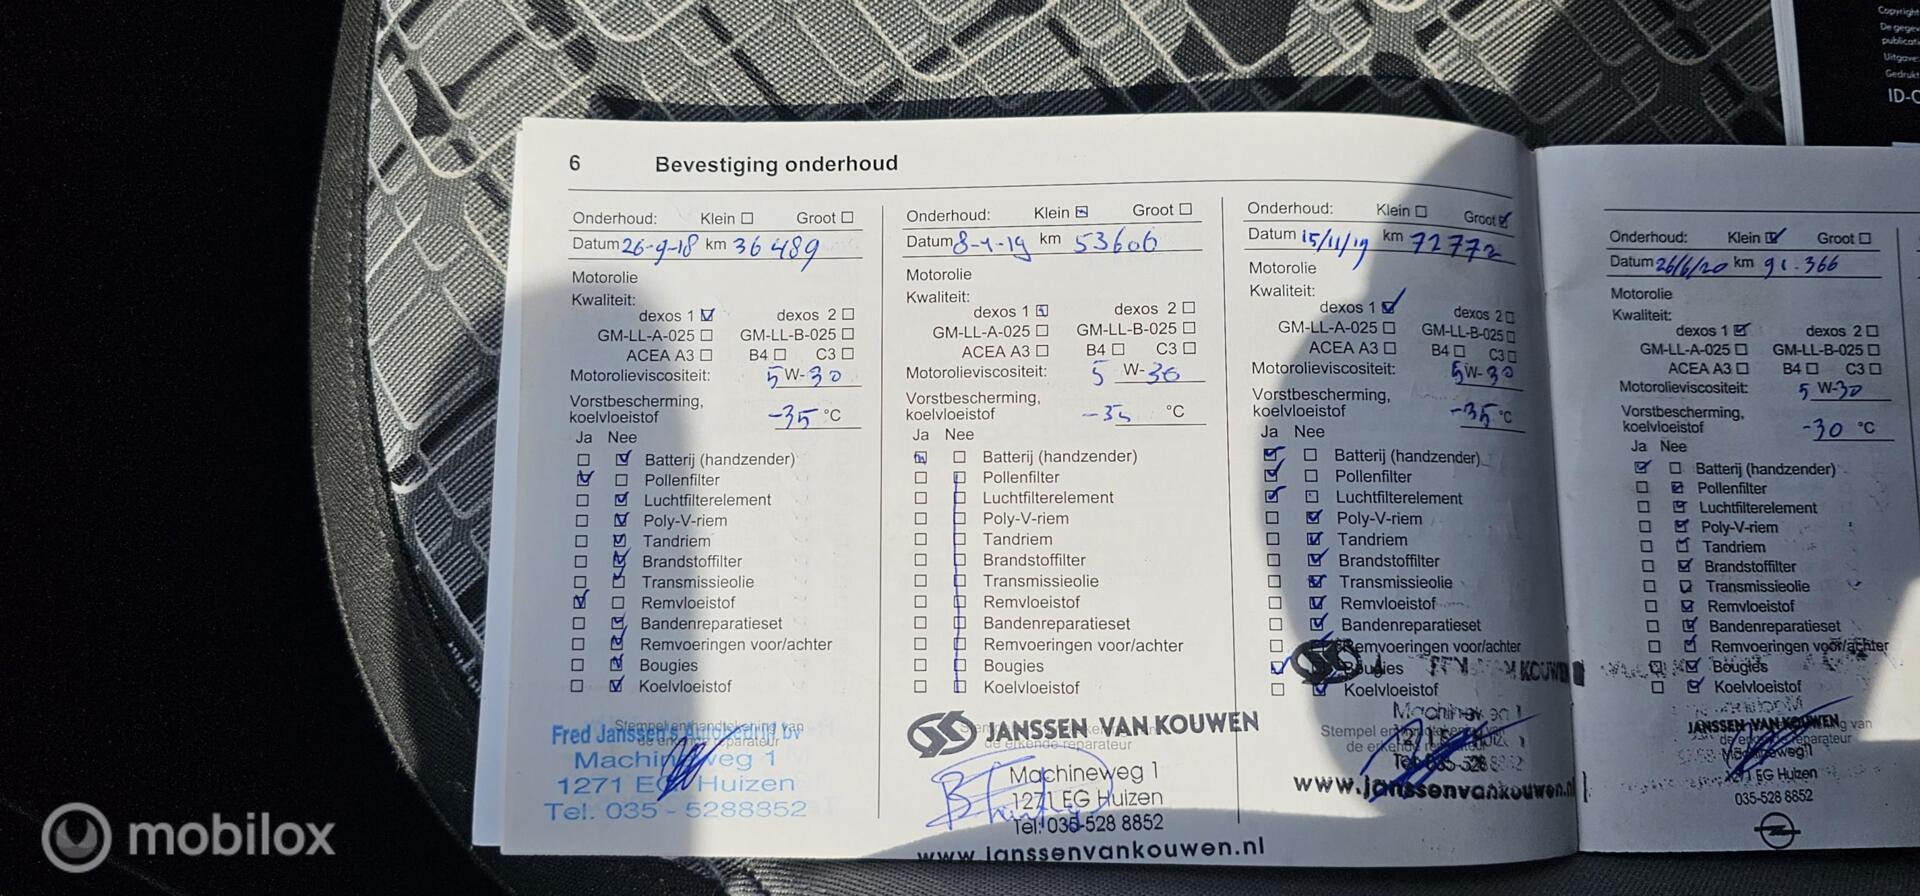 6 Bevestiging onderhoud
Onderhoud: Klein Groot
Datum 26-9-18 km 36 489
Motorolie
Kwaliteit:
dexos 1 dexos 2
GM-LL-A-025 GM-LL-B-025
ACEA A3 B4 C3
Motorolieviscositeit: 5 W-30
Vorstbescherming,
koelvloeistof -35 °C
Ja Nee
Batterij (handzender)
Pollenfilter
Luchtfilterelement
Poly-V-riem
Tandriem
Brandstoffilter
Transmissieolie
Remvloeistof
Bandenreparatieset
Remvoeringen voor/achter
Bougies
Koelvloeistof
Stempel en handtekening van
de erkende reparateur
Fred Janssen's Autobedrijf bv
Machineweg 1
1271 EG Huizen
Tel. 035 - 5288852
Onderhoud: Klein Groot
Datum 8-4-19 km 53606
Motorolie
Kwaliteit:
dexos 1 dexos 2
GM-LL-A-025 GM-LL-B-025
ACEA A3 B4 C3
Motorolieviscositeit: 5 W-30
Vorstbescherming,
koelvloeistof -35 °C
Ja Nee
Batterij (handzender)
Pollenfilter
Luchtfilterelement
Poly-V-riem
Tandriem
Brandstoffilter
Transmissieolie
Remvloeistof
Bandenreparatieset
Remvoeringen voor/achter
Bougies
Koelvloeistof
JANSSEN VAN KOUWEN
de erkende reparateur
Machineweg 1
1271 EG Huizen
Tel: 035-528 8852
www.janssenvankouwen.nl
Onderhoud: Klein Groot
Datum 15/11/19 km 72772
Motorolie
Kwaliteit:
dexos 1 dexos 2
GM-LL-A-025 GM-LL-B-025
ACEA A3 B4 C3
Motorolieviscositeit: 5 W-30
Vorstbescherming,
koelvloeistof -35 °C
Ja Nee
Batterij (handzender)
Pollenfilter
Luchtfilterelement
Poly-V-riem
Tandriem
Brandstoffilter
Transmissieolie
Remvloeistof
Bandenreparatieset
Remvoeringen voor/achter
Bougies
KOUWEN
Koelvloeistof
Machineweg 1
Stempel en
de erkende
www.janssenvankouwen.nl
Onderhoud: Klein Groot
Datum 26/6/20 km 91.366
Motorolie
Kwaliteit:
dexos 1 dexos 2
GM-LL-A-025 GM-LL-B-025
ACEA A3 B4 C3
Motorolieviscositeit: 5 W-30
Vorstbescherming,
koelvloeistof -30 °C
Ja Nee
Batterij (handzender)
Pollenfilter
Luchtfilterelement
Poly-V-riem
Tandriem
Brandstoffilter
Transmissieolie
Remvloeistof
Bandenreparatieset
Remvoeringen voor/achter
Bougies
Koelvloeistof
JANSSEN VAN KOUWEN van
de erkende reparateur
Machineweg 1
1271 EG Huizen
035-528 8852
Copyright
De gegev
publicati
Uitgave:
Gedrukt
ID-O
mobilox